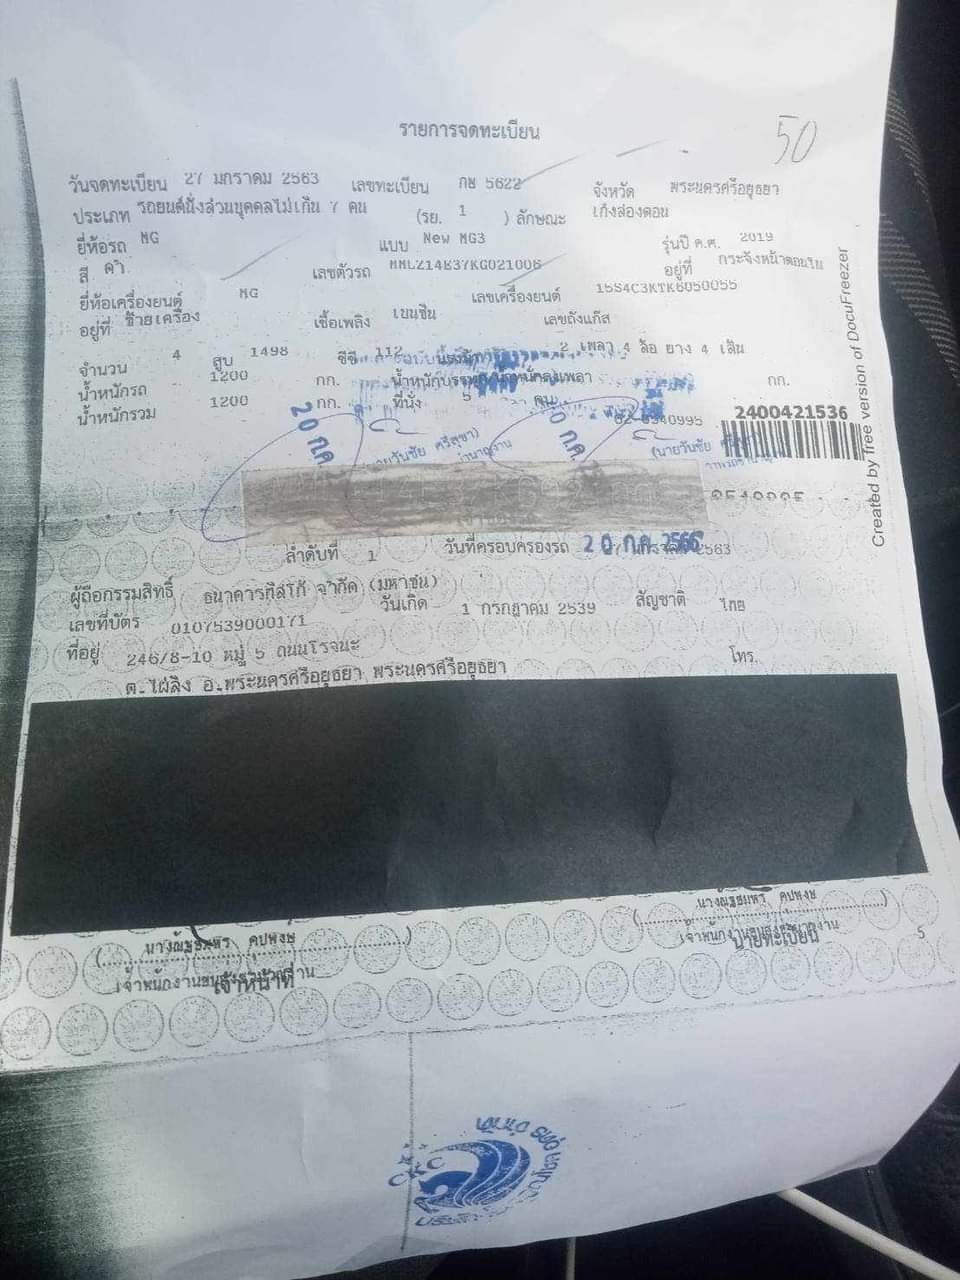 รายการจดทะเบียน
50
วันจดทะเบียน 27 มกราคม 2563 เลขทะเบียน กษ 5622 จังหวัด พระนครศรีอยุธยา
ประเภท รถยนต์นั่งส่วนบุคคลไม่เกิน 7 คน (รย. 1 ) ลักษณะ เก๋งสองตอน
ยี่ห้อรถ MG แบบ New MG3 รุ่นปี ค.ศ. 2019
สี ดำ เลขตัวรถ อยู่ที่ กระจังหน้าตอนใน
ยี่ห้อเครื่องยนต์ MG เลขเครื่องยนต์ 15S4C3KTK6050055
อยู่ที่ ซ้ายเครื่อง เชื้อเพลิง เบนซิน เลขถังแก๊ส
จำนวน 4 สูบ 1498 ซีซี 112 2 เพลา 4 ล้อ ยาง 4 เส้น
น้ำหนักรถ 1200 กก. น้ำหนักบรรทุก/น้ำหนักลงเพลา กก.
น้ำหนักรวม 1200 กก. ที่นั่ง 5 คน
62-8540995
2400421536
20 ก.ค.
20 ก.ค.
(นายวันชัย
ลำดับที่ 1 วันที่ครอบครองรถ 20 ก.ค. 2566
ผู้ถือกรรมสิทธิ์ ธนาคารทิสโก้ จำกัด (มหาชน)
เลขที่บัตร 0107539000171 วันเกิด 1 กรกฎาคม 2539 สัญชาติ ไทย
ที่อยู่ 246/8-10 หมู่ 5 ถนนโรจนะ โทร.
ต.ไผ่ลิง อ.พระนครศรีอยุธยา พระนครศรีอยุธยา
เจ้าหน้าที่
นายทะเบียน
5
Created by free version of DocuFreezer